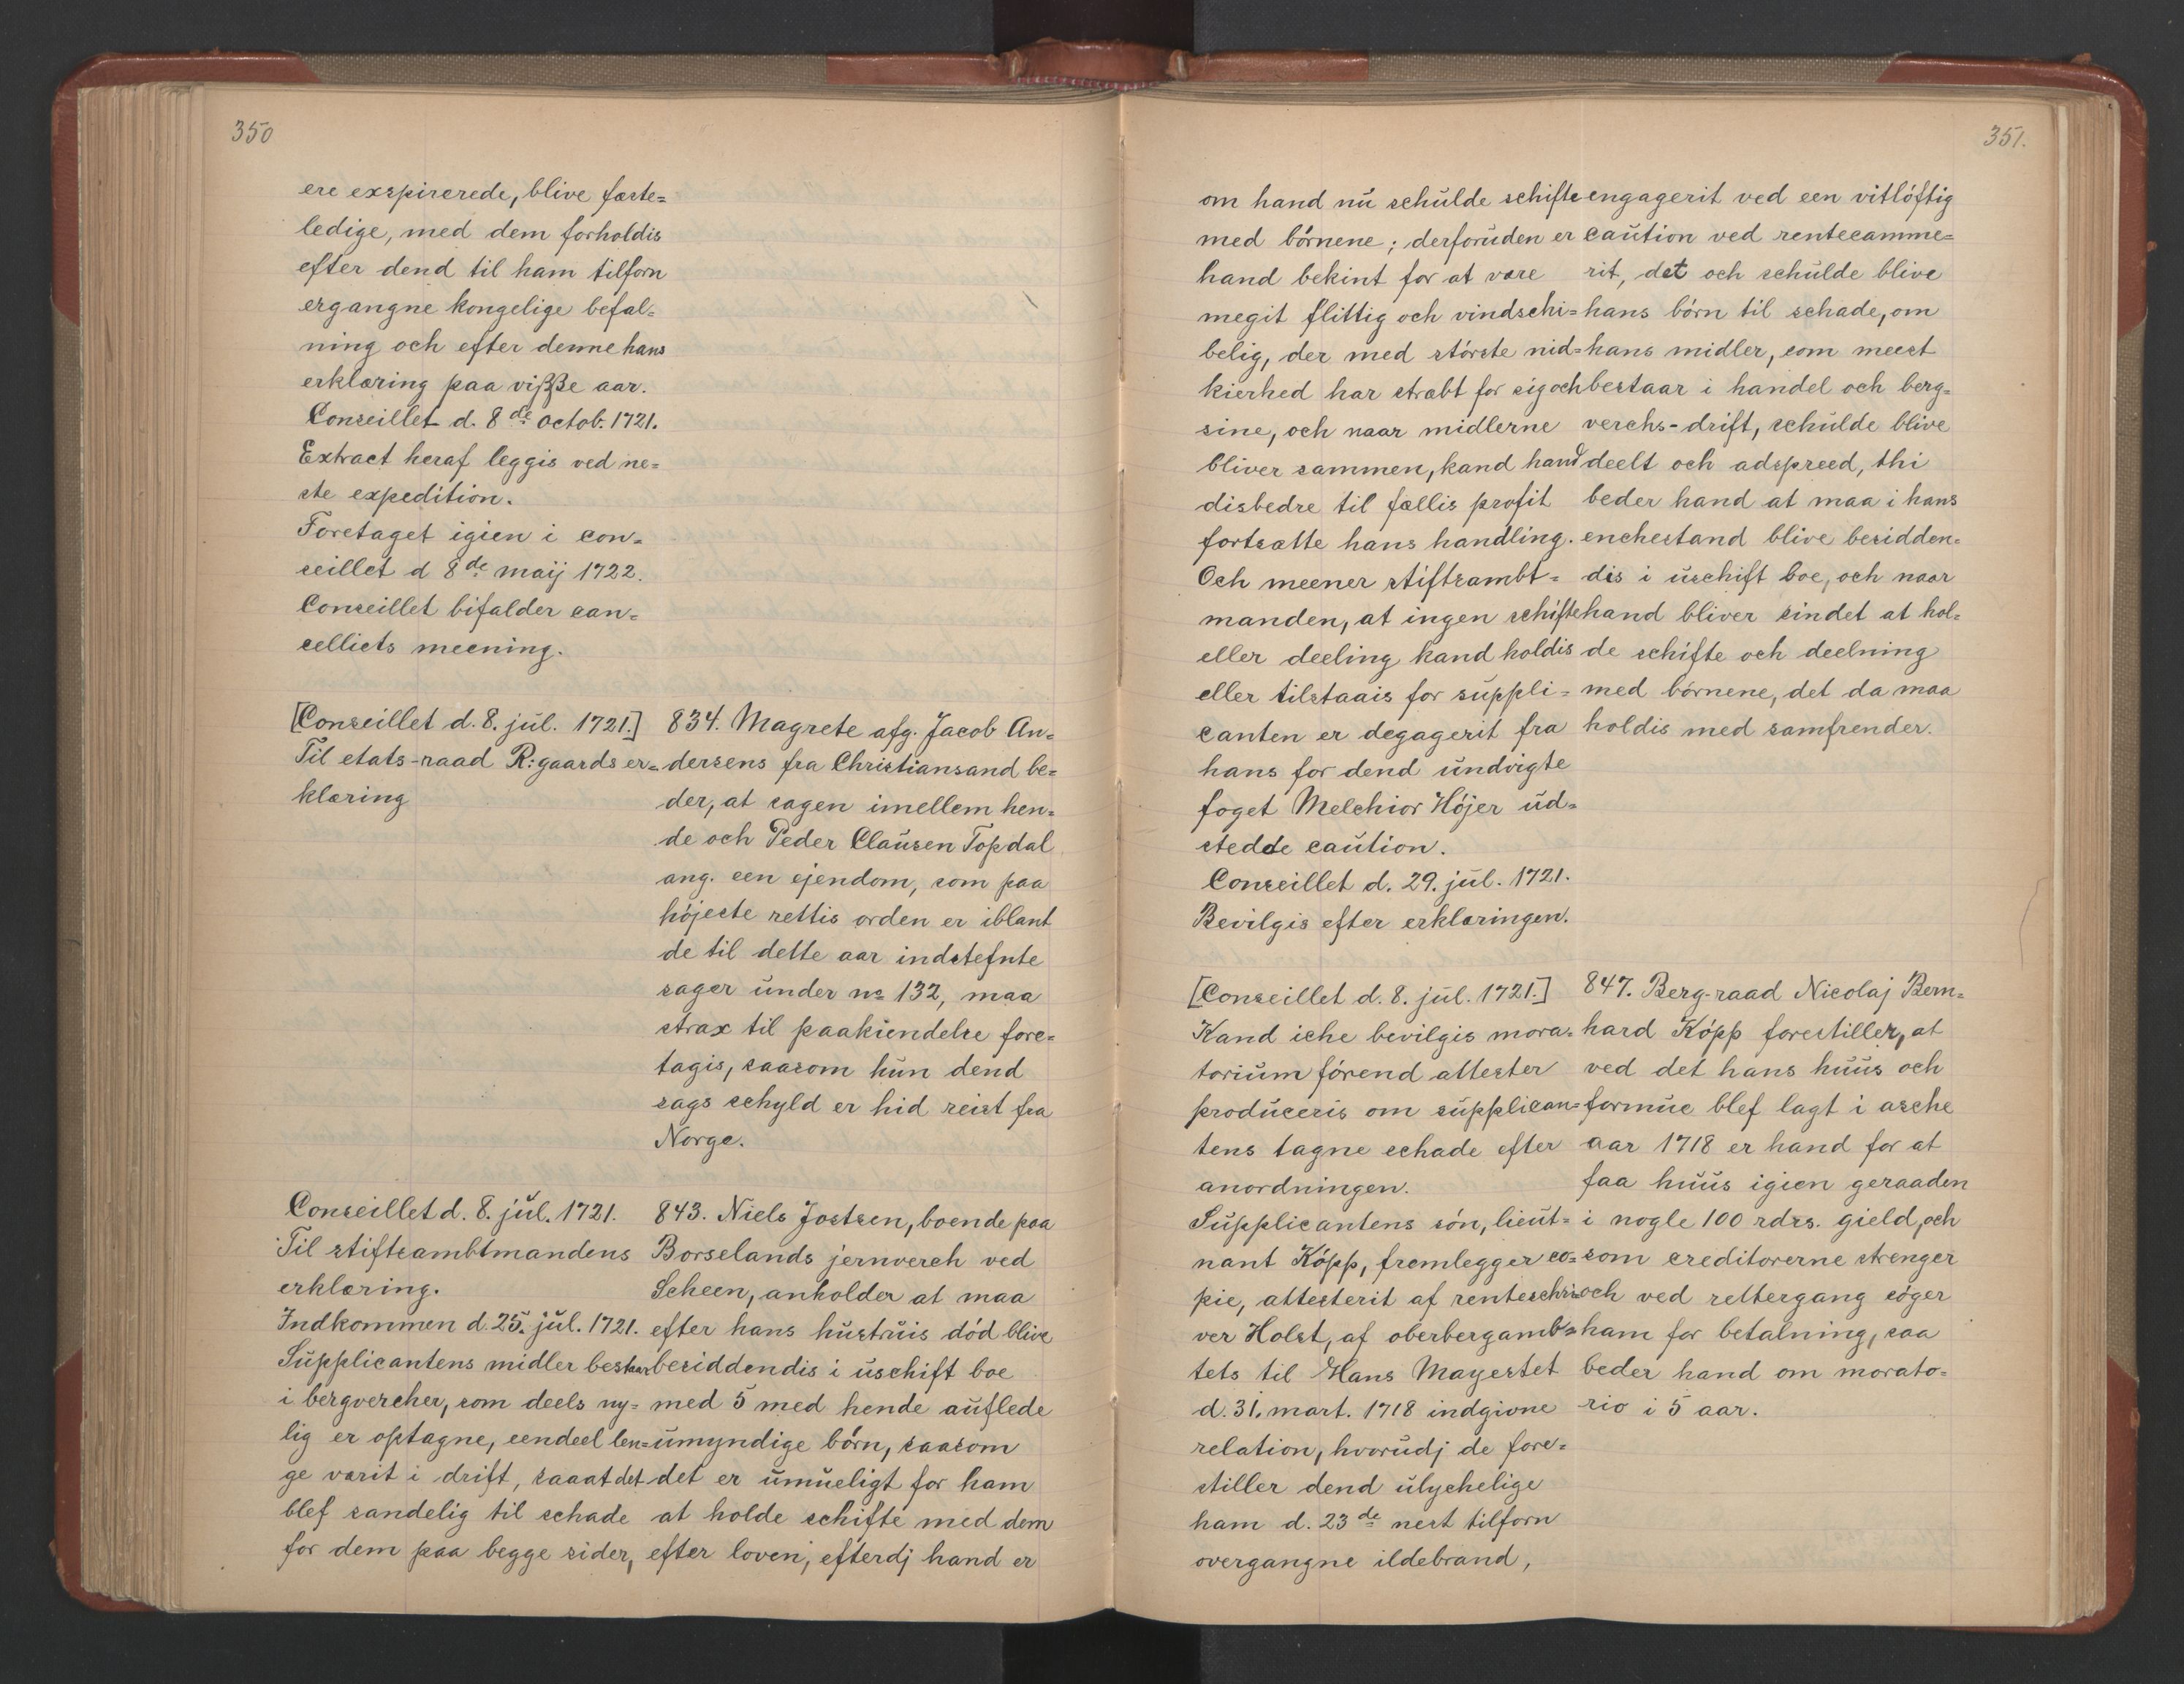 350
ere exspirerede, blive fæste=
ledige, med dem forholdis
efter dend til ham tilforn
ergangne kongelige befal=
ning och efter denne hans
erklæring paa viʒʒe aar.
Conseillet d. 8de octob. 1721.
Extract heraf leggis ved ne=
ste expedition.
Foretaget igien i con=
seillet d 8de maij 1722.
Conseillet bifalder can=
celliets meening.
[Conseillet d. 8. jul. 1721.]
Til etats-raad R:gaards er=
klæring
834. Magrete afg. Jacob An=
dersens fra Christiansand be=
der, at sagen imellem hen=
de och Peder Clausen Topdal
ang. een ejendom, som paa
højeste rettis orden er iblant
de til dette aar indstefnte
sager under no 132, maa
strax til paakiendelse fore=
tagis, saasom hun dend
sags schyld er hid reist fra
Norge.
Conseillet d. 8. jul. 1721.
Til stiftsambtmandens
erklæring.
Indkommen d. 25. jul. 1721.
Supplicantens midler bestaar
i bergvercher, som deels ny=
lig er optagne, eendeel len=
ge værit i drift, saa at det
blef sandelig til schade
for dem paa begge sider,
843. Niels Jostsen, boende paa
Borselands jernverch ved
Scheen, anholder at maa
efter hans hustruis død blive
besiddendis i uschift boe
med 5 med hende auflede
umyndige børn, saasom
det er umueligt for ham
at holde schifte med dem
efter loven, efterdj hand er
351.
om hand nu schulde schifte
med børnene; derforuden er
hand bekint for at være
megit flittig och vindschi=
belig, der med største nid=
kierhed har stræbt for sig och
sine, och naar midlerne
bliver sammen, kand hand
disbedre til fællis profit
fortsætte hans handling.
Och meener stiftsambt=
manden, at ingen schifte
eller deeling kand holdis
eller tilstaais for suppli=
canten er degagerit fra
hans for dend undvigte
foget Melchior Højer ud=
stedde caution.
Conseillet d. 29. jul. 1721.
Bevilgis efter erklæringen.
engagerit ved een vitløftig
caution ved rentecamme=
rit, det och schulde blive
hans børn til schade, om
hans midler, som meest
bestaar i handel och berg=
verchs-drift, schulde blive
deelt och adspreed, thi
beder hand at maa i hans
enchestand blive besidden=
dis i uschift boe, och naar
hand bliver sindet at hol=
de schifte och deelning
med børnene, det da maa
holdis med samfrender.
[Conseillet d. 8. jul. 1721.]
Kand iche bevilgis mora=
torium førend attester
produceris om supplican=
tens tagne schade efter
anordningen.
Supplicantens søn, lieut=
nant Köpp, fremlegger co=
pie, attesterit af renteschri=
ver Holst, af oberbergamb=
tets til Hans Mayestet
d. 31. mart. 1718 indgivne
relation, hvorudj de fore=
stiller dend ulychelige
ham d. 23de nest tilforn
overgangne ildebrand,
847. Berg-raad Nicolaj Bern=
hard Köpp forestiller, at
ved det hans huus och
formue blef lagt i asche
aar 1718 er hand for at
faa huus igien geraaden
i nogle 100 rdrs. gield, och
som creditorerne strenger
och ved rettergang søger
ham for betalning, saa
beder hand om morato=
rio i 5 aar.